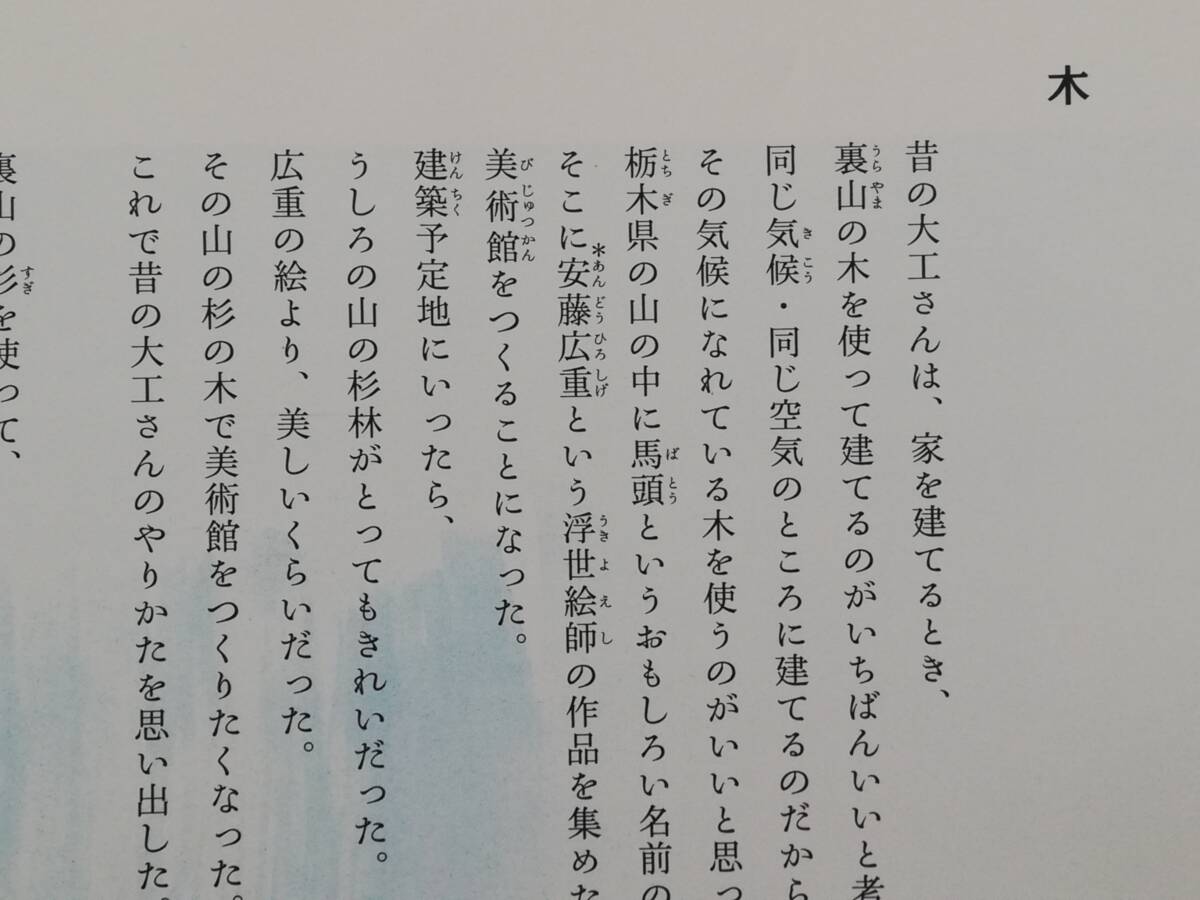 木
昔の大工さんは、家を建てるとき、
裏山の木を使って建てるのがいちばんいいと考
同じ気候・同じ空気のところに建てるのだから
その気候になれている木を使うのがいいと思っ
栃木県の山の中に馬頭というおもしろい名前の
そこに*安藤広重という浮世絵師の作品を集めた
美術館をつくることになった。
建築予定地にいったら、
うしろの山の杉林がとってもきれいだった。
広重の絵より、美しいくらいだった。
その山の杉の木で美術館をつくりたくなった。
これで昔の大工さんのやりかたを思い出した。
裏山の杉を使って、